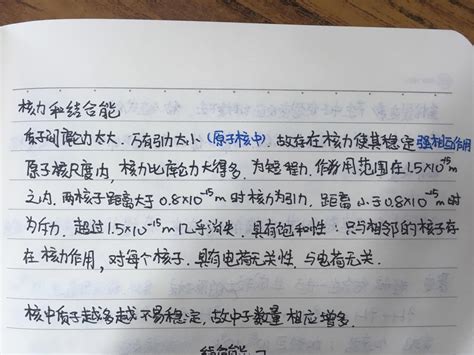 核力和结合能
质子间库仑力太大.万有引力太小(原子核中).故存在核力使其稳定 强相互作用
原子核尺度内,核力比库仑力大得多.为短程力.作用范围在1.5×10⁻¹⁵m
之内.两核子距离大于0.8×10⁻¹⁵m时核力为引力.距离小于0.8×10⁻¹⁵m时
为斥力.超过1.5×10⁻¹⁵m几乎消失.具有饱和性:只与相邻的核子存
在核力作用,对每个核子.具有电荷无关性.与电荷无关.
核中质子越多越不易稳定,故中子数量相应增多.
结合能